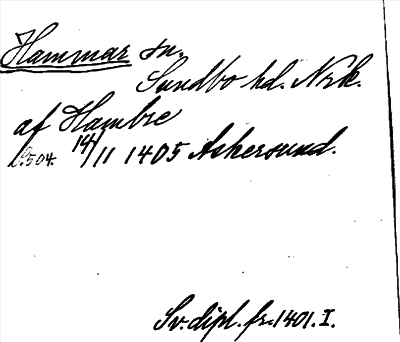 Hammar sn.
Sundbo hd. Nrk.
af Hambre
14/11 1405 Askersund.
s. 504.
Sv. dipl. fr. 1401. I.